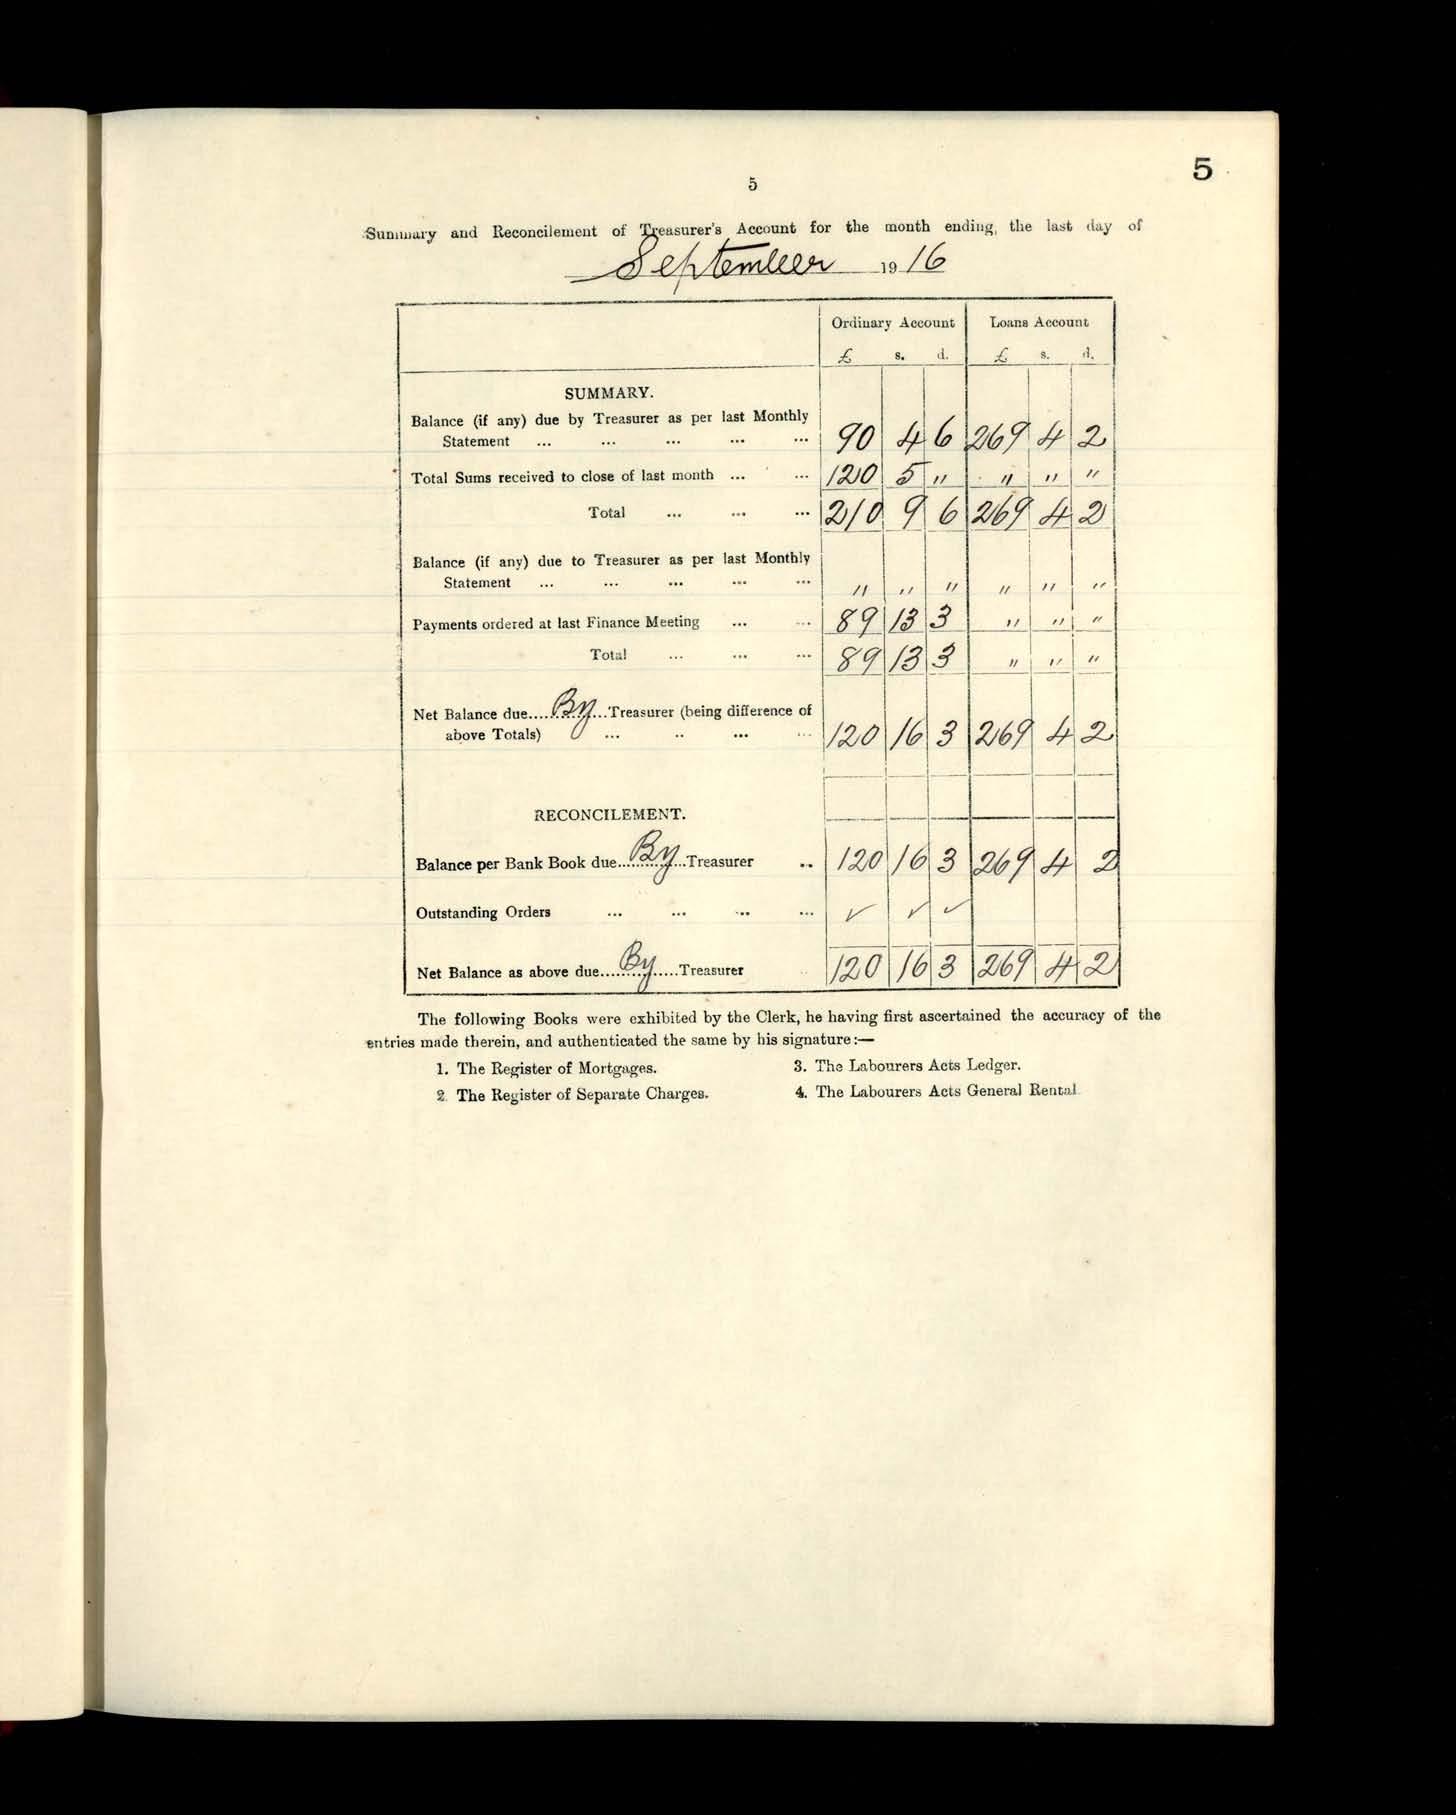 5
5
Summary and Reconcilement of Treasurer's Account for the month ending, the last day of
September 1916
Ordinary Account Loans Account
£ s. d. £ s. d.
SUMMARY.
Balance (if any) due by Treasurer as per last Monthly
Statement ... ... ... ... ... 90 4 6 269 4 2
Total Sums received to close of last month ... ... 120 5 " " " "
Total ... ... ... 210 9 6 269 4 2
Balance (if any) due to Treasurer as per last Monthly
Statement ... ... ... ... ... " " " " " "
Payments ordered at last Finance Meeting ... ... 89 13 3 " " "
Total ... ... ... 89 13 3 " " "
Net Balance due....By....Treasurer (being difference of
above Totals) ... .. ... ... 120 16 3 269 4 2
RECONCILEMENT.
Balance per Bank Book due....By....Treasurer .. 120 16 3 269 4 2
Outstanding Orders ... ... ... ... ✓ ✓ ✓
Net Balance as above due....By....Treasurer 120 16 3 269 4 2
The following Books were exhibited by the Clerk, he having first ascertained the accuracy of the
entries made therein, and authenticated the same by his signature:—
1. The Register of Mortgages. 3. The Labourers Acts Ledger.
2. The Register of Separate Charges. 4. The Labourers Acts General Rental.